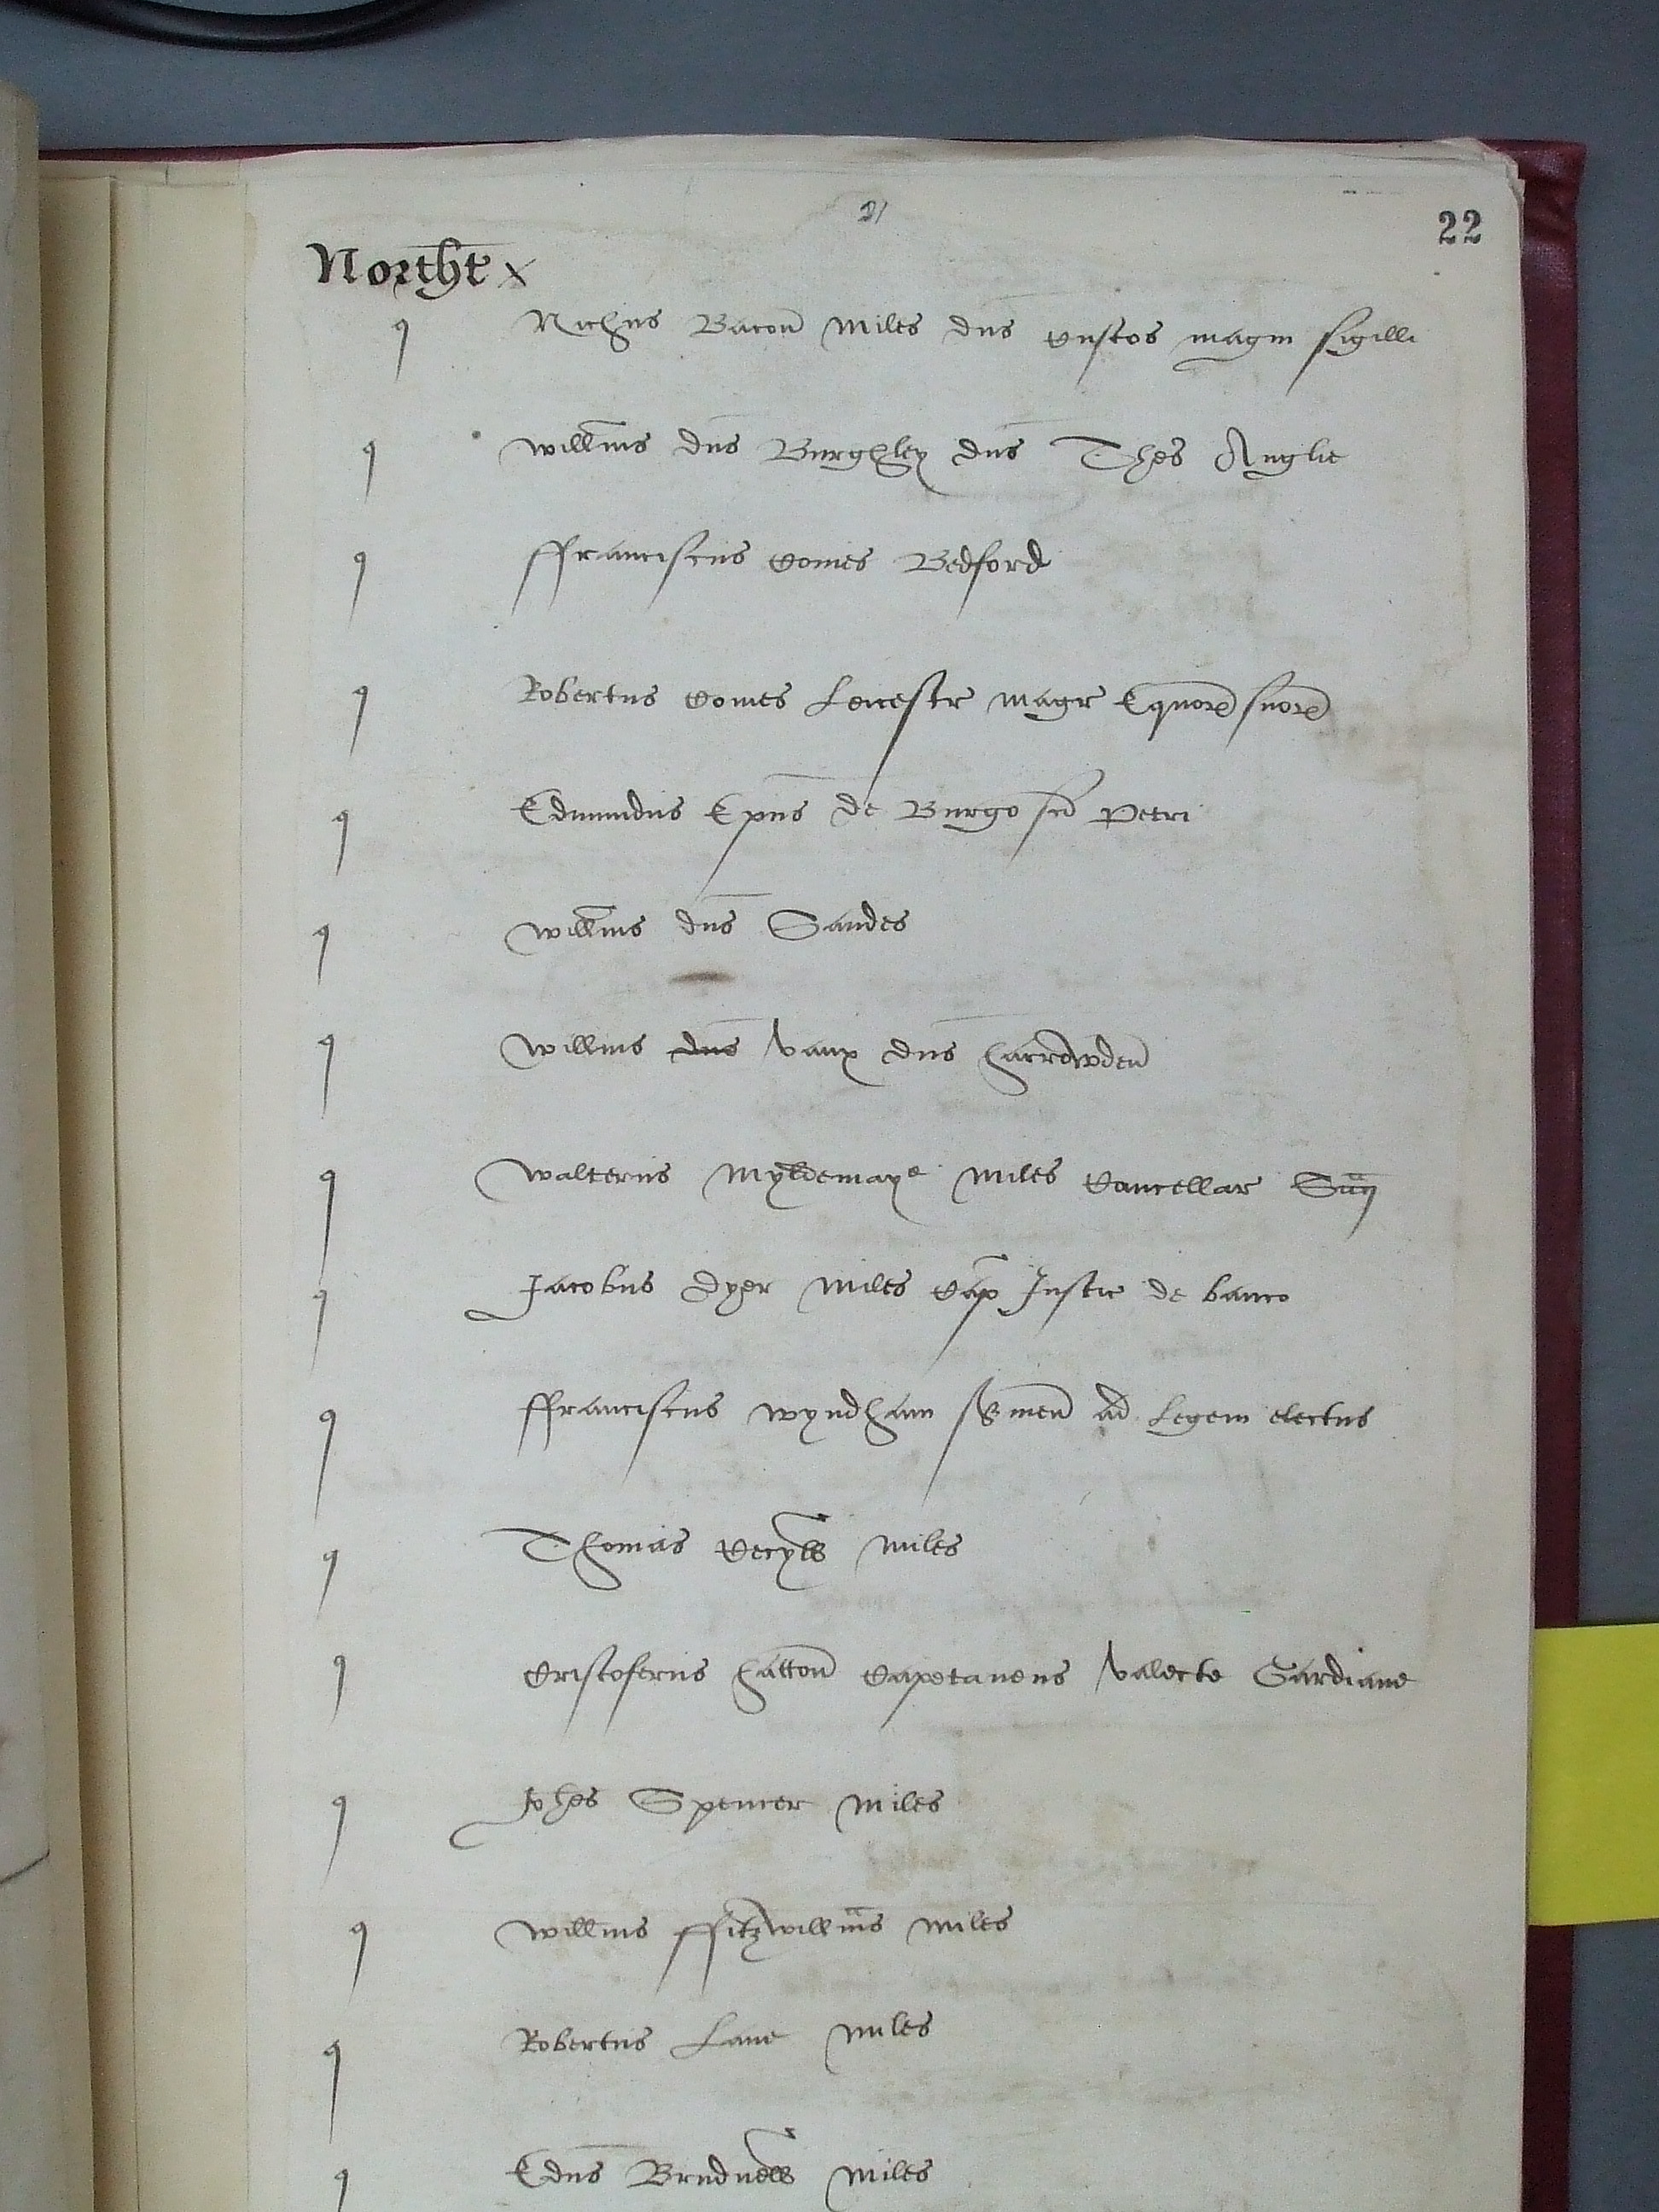 21
22
Northt x
q Nichus Bacon Miles dns Custos magni sigilli
q willms dns Burghley dns Thes Anglie
q ffranciscus Comes Bedford
q Robertus Comes Leicestr magr Equor suor
q Edmundus Epus de Burgo sci Petri
q willms dns Sandes
q willms dns Vaux dns harrowden
q walterus Myldemaye Miles Cancellar Scij
q Jacobus Dyer Miles Cap Justic de banco
q ffranciscus wyndham svien ad Legem electus
q Thomas Cecyll Miles
q Cristoferus hatton Capetaneus Valecte Gardiane
q Johes Spencer Miles
q willms ffitzwillms Miles
q Robertus Lane Miles
q Edus Brudnell Miles